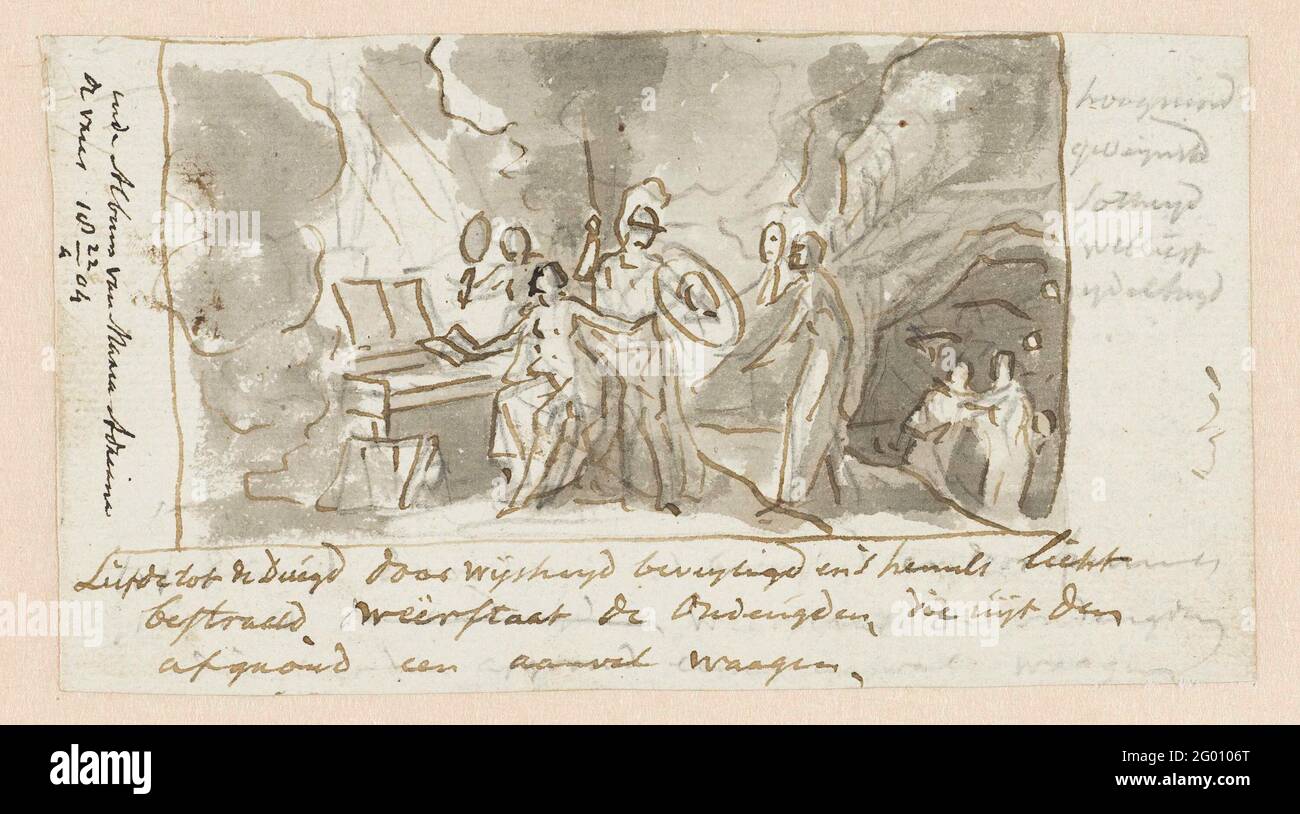 inde Album van Maria Adriana
de Vries 18 22/4 04
hoogmoed
geveynsd
Sotheyd
wellust
ydelheyd
Liefde tot de Deugd door Wijsheyd beveyligd en 's hemels licht
bestraald Weërstaat de Ondeugden, die uijt den
afgrond een aanval waagen.
alamy
Image ID: 2G0106T
www.alamy.com